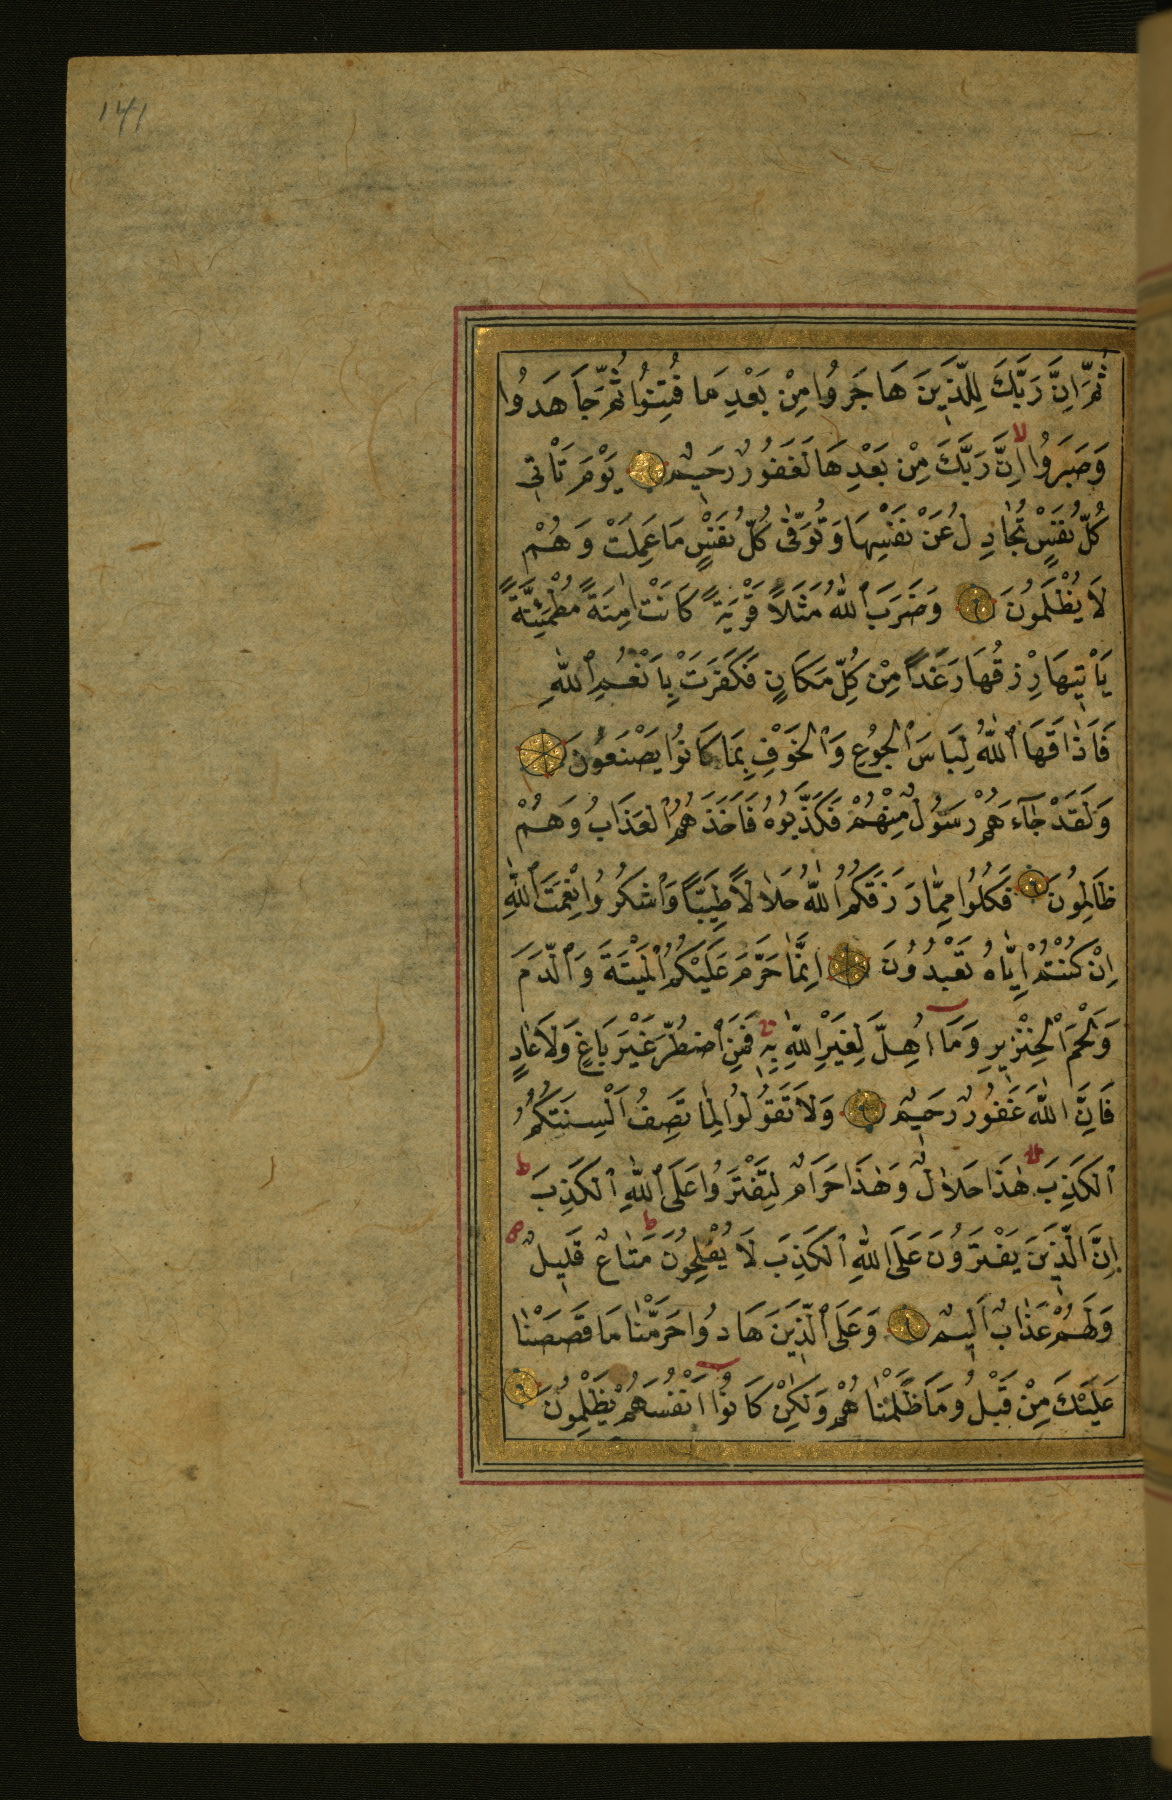 ١٧١
ثُمَّ اِنَّ رَبَّكَ لِلَّذِينَ هَاجَرُوا مِنْ بَعْدِ مَا فُتِنُوا ثُمَّ جَاهَدُوا
وَصَبَرُوا لا اِنَّ رَبَّكَ مِنْ بَعْدِهَا لَغَفُورٌ رَحِيمٌ يَوْمَ تَأْتِي
كُلُّ نَفْسٍ تُجَادِلُ عَنْ نَفْسِهَا وَتُوَفّٰى كُلُّ نَفْسٍ مَا عَمِلَتْ وَهُمْ
لَا يُظْلَمُونَ وَضَرَبَ ٱللّٰهُ مَثَلًا قَرْيَةً كَانَتْ اٰمِنَةً مُطْمَئِنَّةً
يَأْتِيهَا رِزْقُهَا رَغَدًا مِنْ كُلِّ مَكَانٍ فَكَفَرَتْ بِاَنْعُمِ ٱللّٰهِ
فَاَذَاقَهَا ٱللّٰهُ لِبَاسَ ٱلْجُوعِ وَٱلْخَوْفِ بِمَا كَانُوا يَصْنَعُونَ
وَلَقَدْ جَآءَهُمْ رَسُولٌ مِنْهُمْ فَكَذَّبُوهُ فَاَخَذَهُمُ ٱلْعَذَابُ وَهُمْ
ظَالِمُونَ فَكُلُوا مِمَّا رَزَقَكُمُ ٱللّٰهُ حَلَالًا طَيِّبًا وَٱشْكُرُوا نِعْمَتَ ٱللّٰهِ
اِنْ كُنْتُمْ اِيَّاهُ تَعْبُدُونَ اِنَّمَا حَرَّمَ عَلَيْكُمُ ٱلْمَيْتَةَ وَٱلدَّمَ
وَلَحْمَ ٱلْخِنْزِيرِ وَمَا اُهِلَّ لِغَيْرِ ٱللّٰهِ بِهِ فَمَنِ ٱضْطُرَّ غَيْرَ بَاغٍ وَلَا عَادٍ
فَاِنَّ ٱللّٰهَ غَفُورٌ رَحِيمٌ وَلَا تَقُولُوا لِمَا تَصِفُ اَلْسِنَتُكُمُ
ٱلْكَذِبَ هٰذَا حَلَالٌ وَهٰذَا حَرَامٌ لِتَفْتَرُوا عَلَى ٱللّٰهِ ٱلْكَذِبَ ط
اِنَّ ٱلَّذِينَ يَفْتَرُونَ عَلَى ٱللّٰهِ ٱلْكَذِبَ لَا يُفْلِحُونَ ط مَتَاعٌ قَلِيلٌ
وَلَهُمْ عَذَابٌ اَلِيمٌ وَعَلَى ٱلَّذِينَ هَادُوا حَرَّمْنَا مَا قَصَصْنَا
عَلَيْكَ مِنْ قَبْلُ وَمَا ظَلَمْنَاهُمْ وَلٰكِنْ كَانُوا اَنْفُسَهُمْ يَظْلِمُونَ